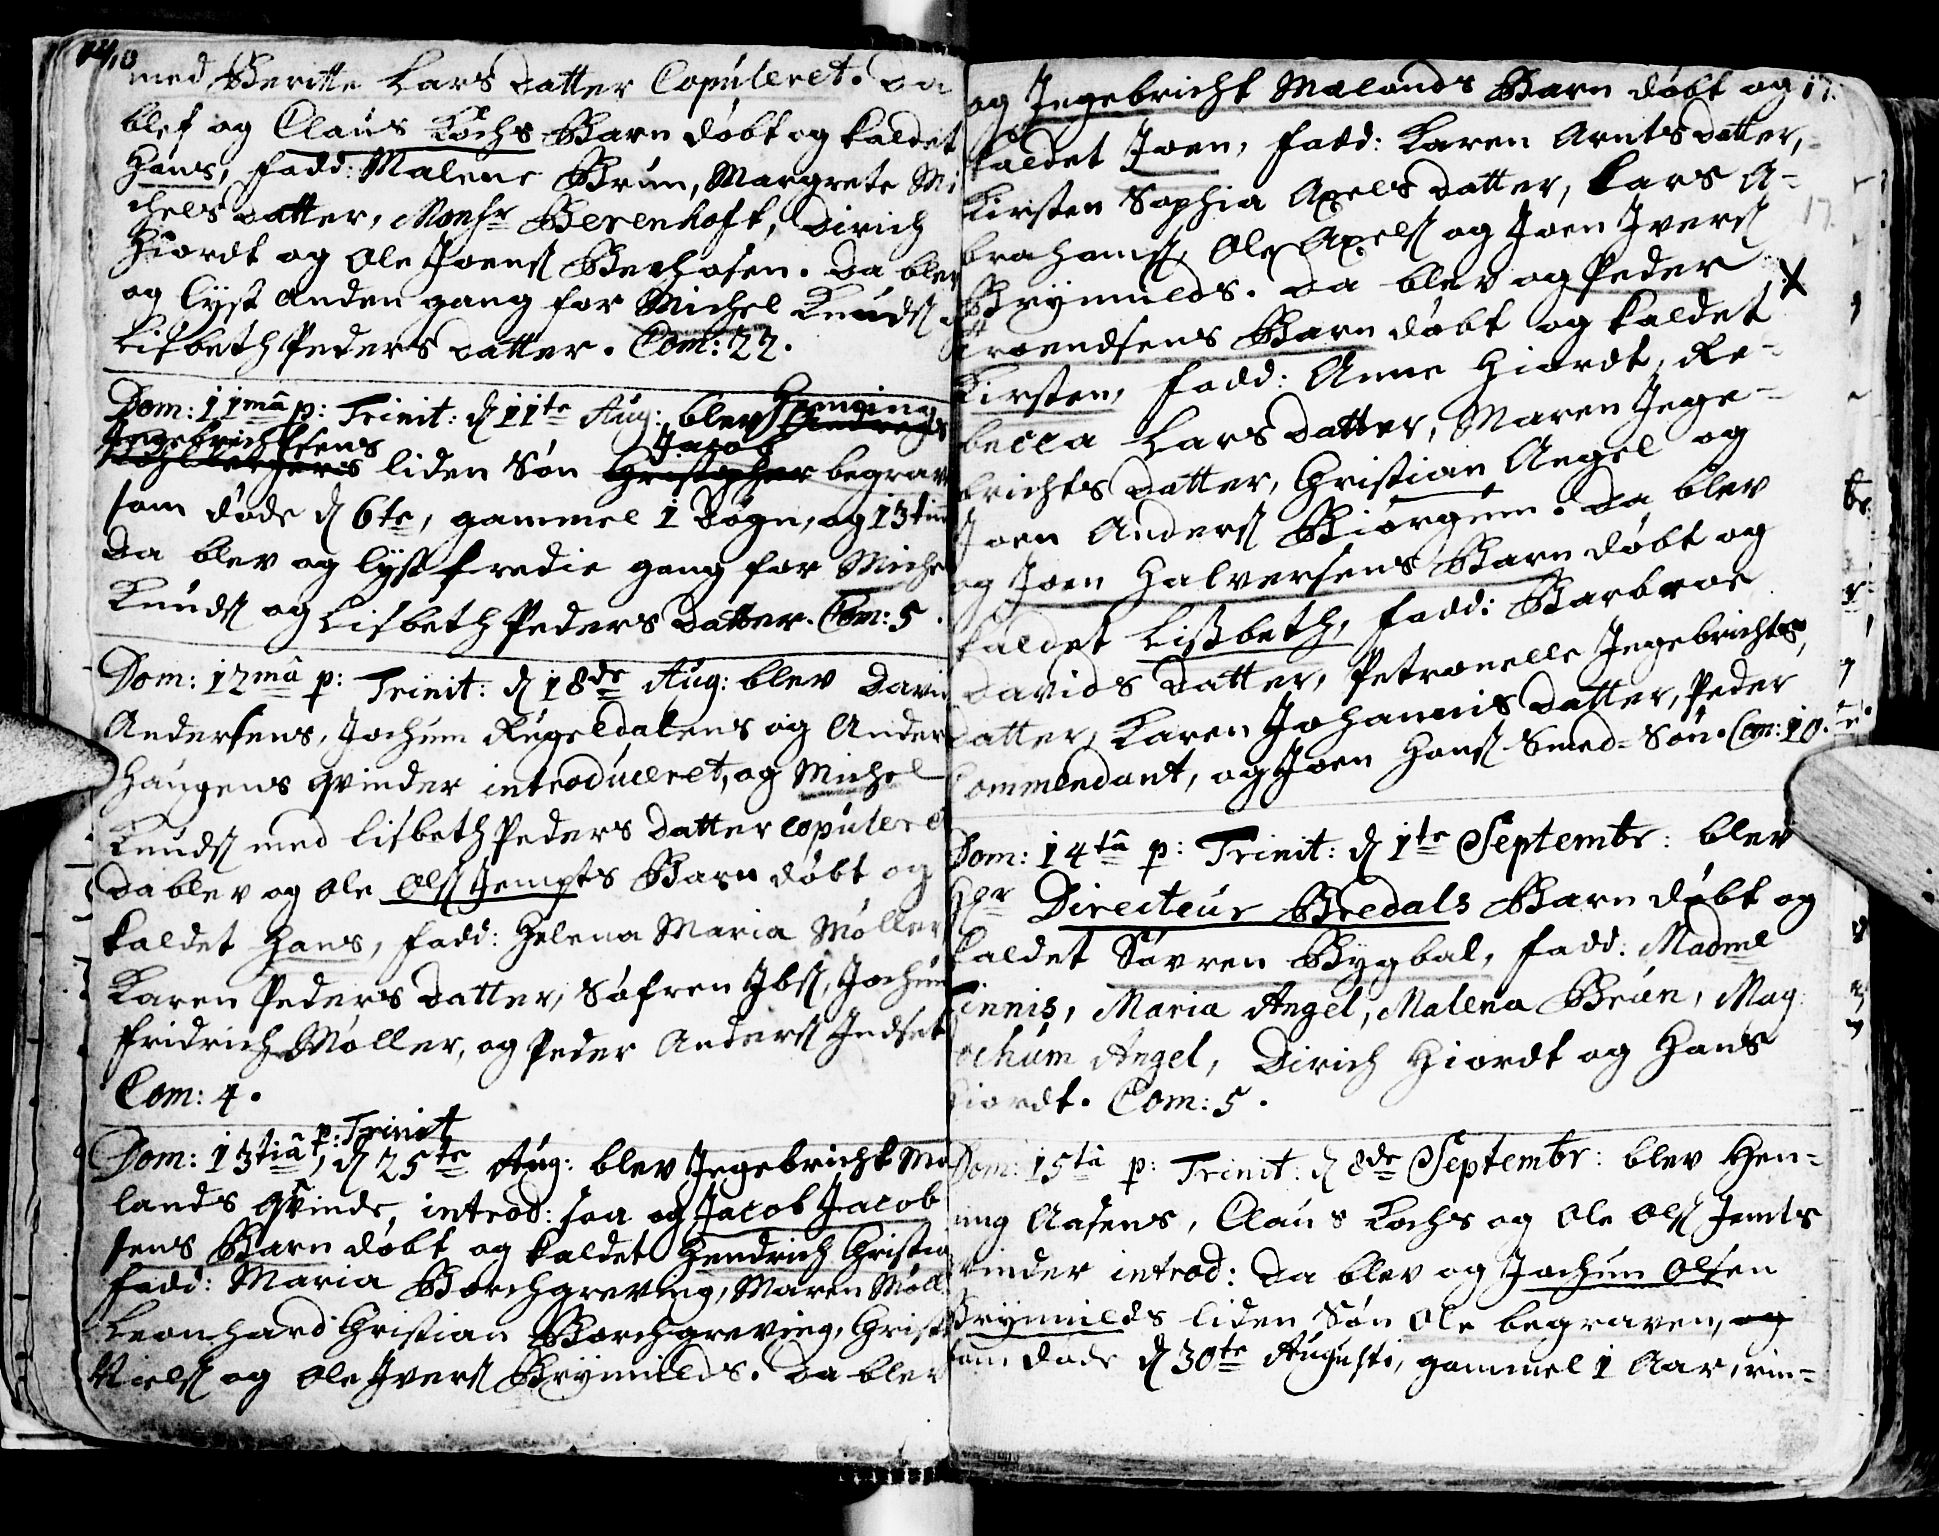 med Beritte Lars datter Copuleret. Da
blef og Claus Kochs Barn døbt og kaldet
Hans, fadd: Malene Brun, Margrete Mi
chels datter, Monsr Berenhoft, Dirich
Hiordt og Ole Joens Berhosen. Da blev
og lyst anden gang for Michel Knuds
Lisbeth Peders datter. Com: 22.
Dom: 11mâ p: Trinit: d 11te Aug: blev Henning
Ingebrichtsens liden Søn Jacob begrav
som døde d 6te, gammel 1 døgn, og 13 tim
Da blev og lyst tredie gang for Miche
Knuds og Lisbeth Peders datter. Com: 5.
Dom: 12mâ p: Trinit: d 18de Aug: blev Davi
Andersens, Jochum Rugeldalens og Ander
Haugens qvinder introduceret, og Michel
Knuds med Lisbeth Peders datter copulere
Da blev og Ole Ols Jempts Barn døbt og
kaldet Hans, fadd: Helena Maria Møller
Karen Peders datter, Søfren Ibs, Jochum
Fridrich Møller, og Peder Anders Indset
Com: 4.
Dom: 13tiâ p: Trinit, d 25te Aug: blev Ingebricht Ma
lands qvinde, introd: saa og Jacob Jacob
sens Barn døbt og kaldet Hendrich Christia
fadd: Maria Borchgreving, Maren Møll
Leonhard Christian Borchgreving, Christ
Niels og Ole Ivers Brynilds. Da blev
og Ingebricht Malands Barn døbt og 17.
kaldet Joen, fadd: Karen Arnts datter,
Kirsten Sophia Axels datter, Lars A-
brahams, Ole Axels og Joen Ivers
Brynilds. Da blev og Peder
Troendsens Barn døbt og kaldet
Kirsten, fadd: Anne Hiordt, Re-
becca Lars datter, Maren Inge-
brichts datter, Christian Angel og
Joen Anders Biørgen. Da blev
og Joen Halversens Barn døbt og
kaldet Lisbeth, fadd: Barbroe
Davids datter, Petronelle Ingebrichts,
datter, Karen Johannis datter, Peder
Commendant, og Joen Hans Smed-Søn. Com: 10.
Dom: 14tâ p: Trinit: d 1te Septembr: blev
Hr Directeur Bredals Barn døbt og
kaldet Søvren Bygbal, fadd: Madme
Finnis, Maria Angel, Malena Brun, Mag
ochum Angel, Dirich Hiordt og Hans
Hiordt. Com: 5.
Dom: 15tâ p: Trinit: d 8de Septembr: blev Hen-
ning Aasens, Claus Kochs og Ole Ols Jemts
qvinder introd: Da blev og Jochum Olsen
Brynilds liden Søn Ole begraven, og
som døde d 30te Augusti, gammel 1 Aar, vin-